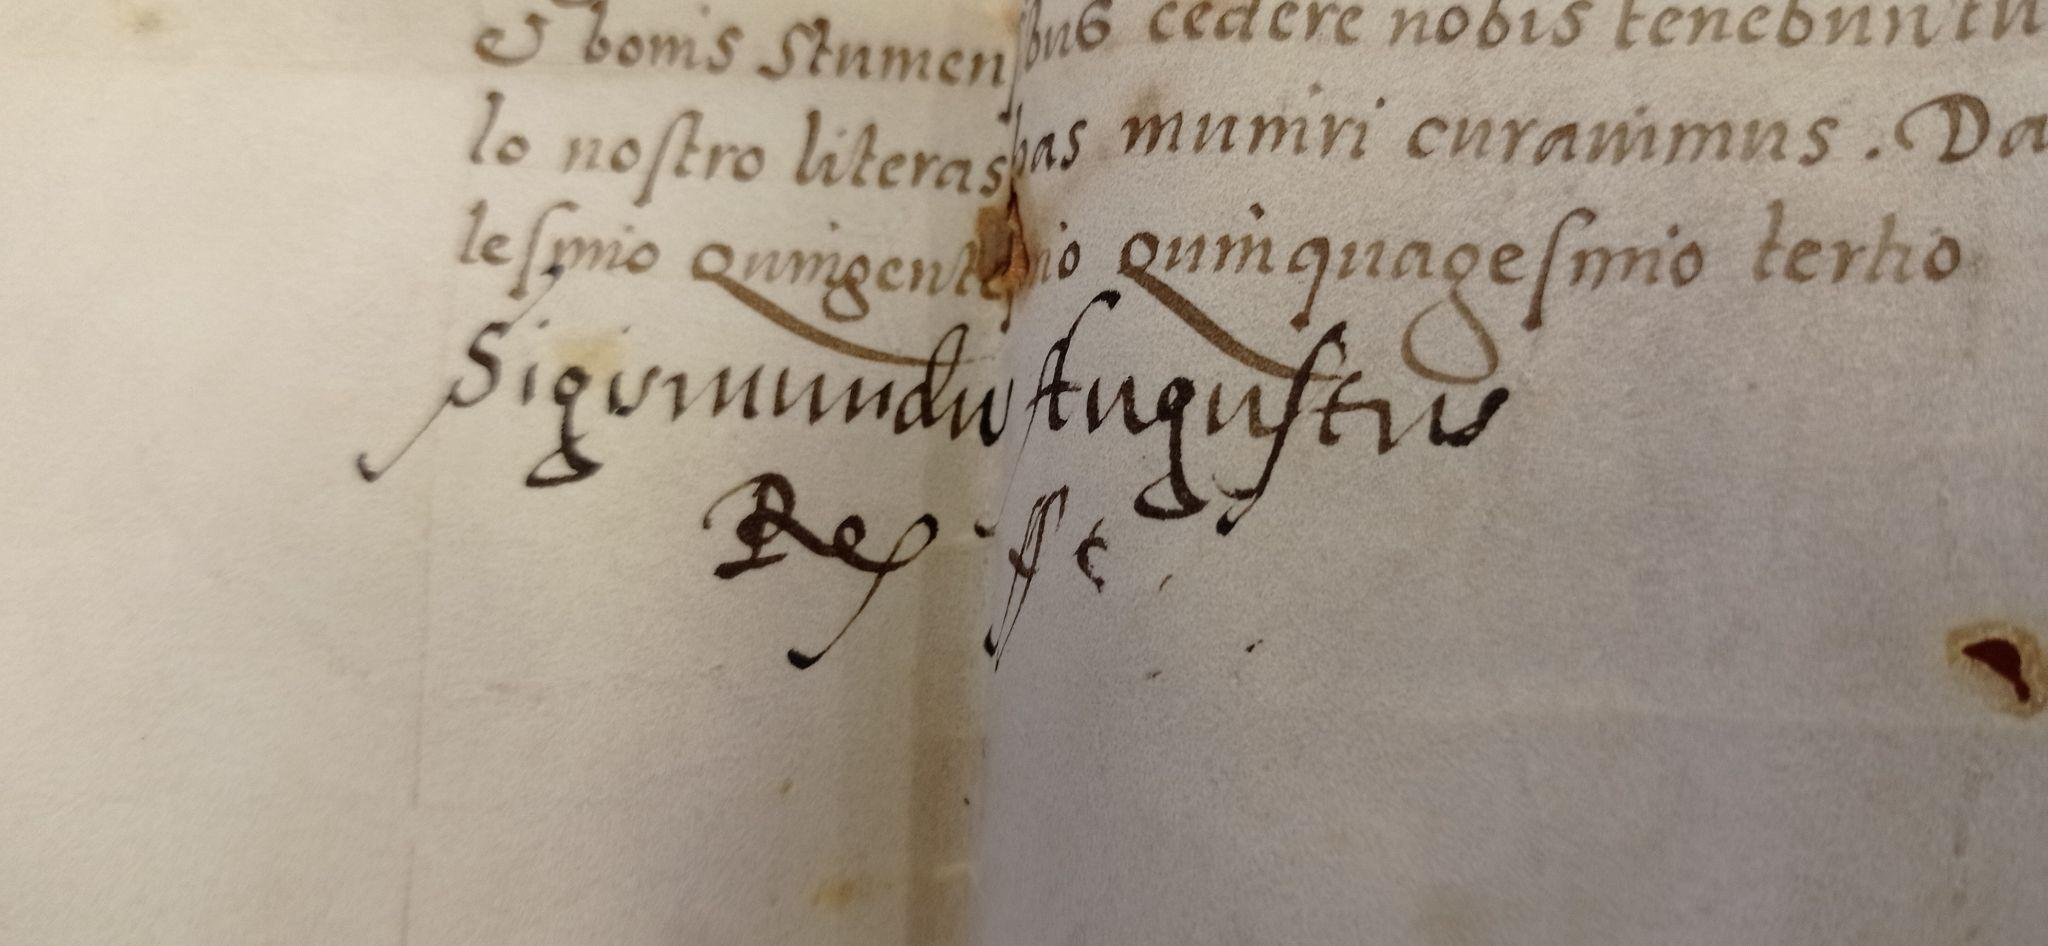 & bonis Stumensibus cedere nobis tenebuntu
lo nostro literas has muniri curauimus. Da
lesimo Quingentesimo Quinquagesimo tertio
Sigismundus Augustus
Rex sst